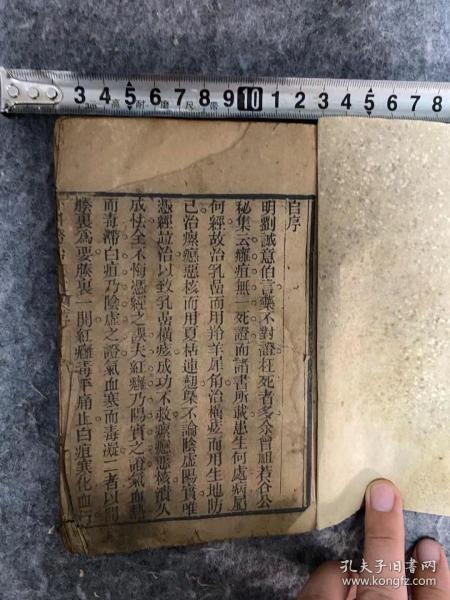 自序
明劉誠意伯言藥不對證枉死者多余曾祖若谷公
秘集云癰疽無一死證而諸書所載患生何處病屬
何經故治乳嵒而用羚羊犀角治橫痃而用生地防
己治瘰癧惡核而用夏枯連翹槩不論陰虛陽實唯
憑經證治以致乳嵒橫痃成功不救瘰癧惡核潰久
成怯全不悔憑經之誤夫紅癰乃陽實之證氣血熱
而毒滯白疽乃陰虛之證氣血寒而毒凝二者以開
腠裏為要腠裏一開紅癰毒平痛止白疽寒化血行
3 4 5 6 7 8 9 10 1 2 3 4 5 6 7 8
孔夫子旧书网
www.kongfz.com